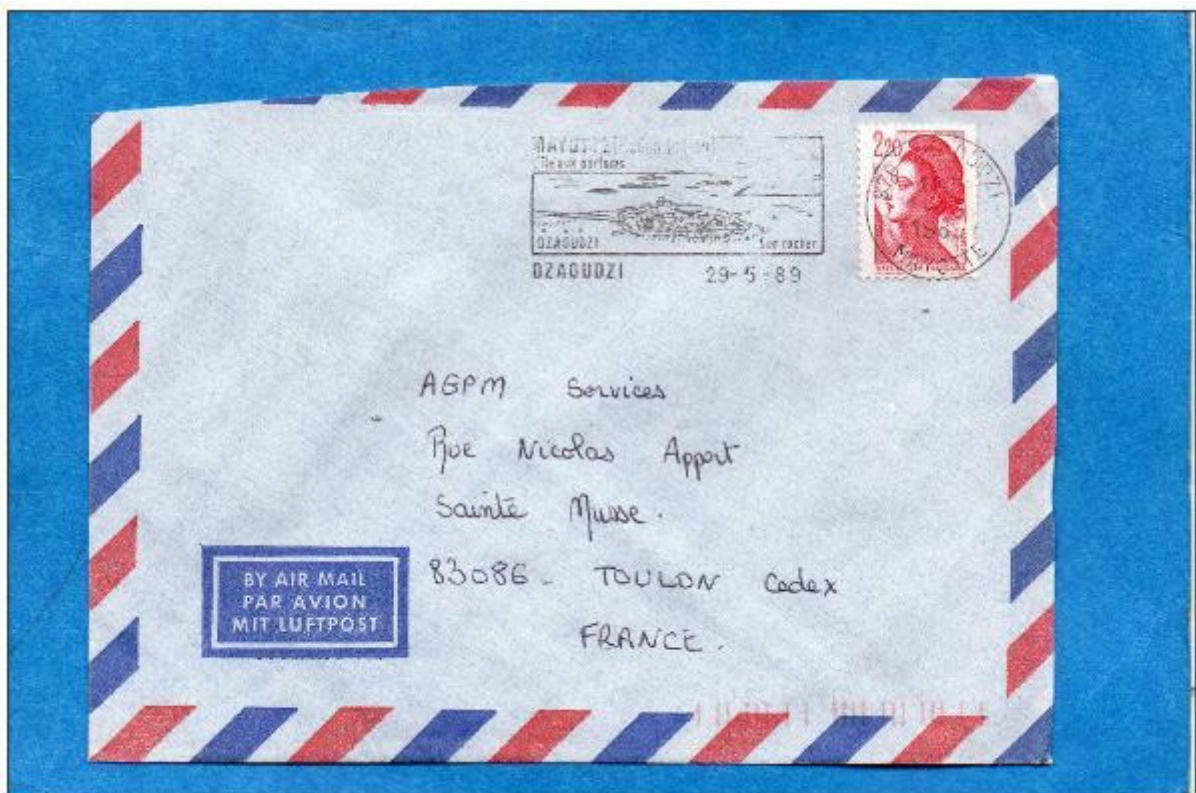 MAYOTTE
île aux parfums
DZAOUDZI Son rocher
DZAOUDZI 29-5-89
2,20
MAYOTTE
AGPM Services
Rue Nicolas Appert
Sainte Musse.
83086 - TOULON Cedex
FRANCE.
BY AIR MAIL
PAR AVION
MIT LUFTPOST